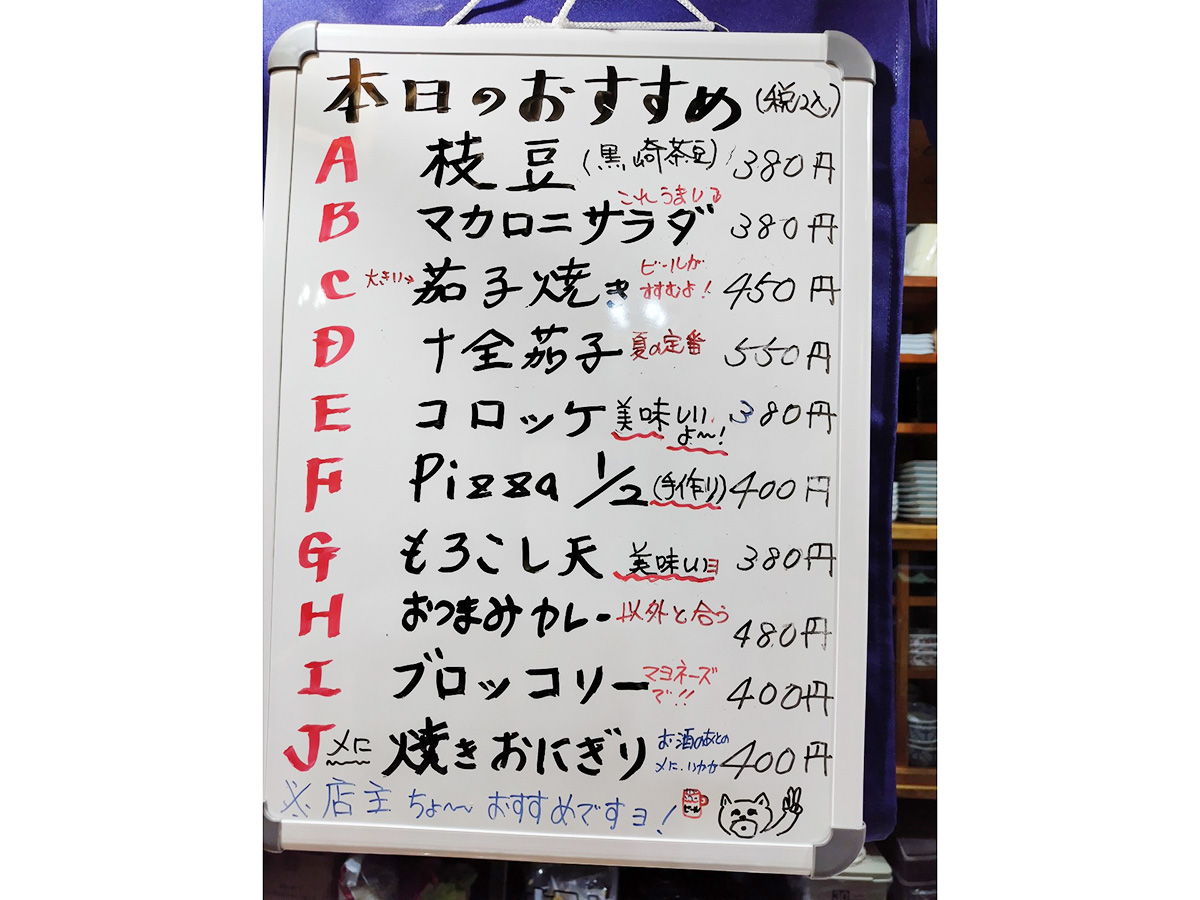 本日のおすすめ (税込)
A 枝豆 (黒崎茶豆) 380円
これうまい
B マカロニサラダ 380円
C 大きい→ 茄子焼き ビールが すすむよ! 450円
D 十全茄子 夏の定番 550円
E コロッケ 美味しい よ〜! 380円
F Pizza 1/2 (手作り) 400円
G もろこし天 美味しいヨ 380円
H おつまみカレー 以外と合う 480円
I ブロッコリー マヨネーズ で!! 400円
J 〆に 焼きおにぎり お酒のあとの 〆に、いかが 400円
※店主 ちょ〜〜 おすすめですヨ!
ビール